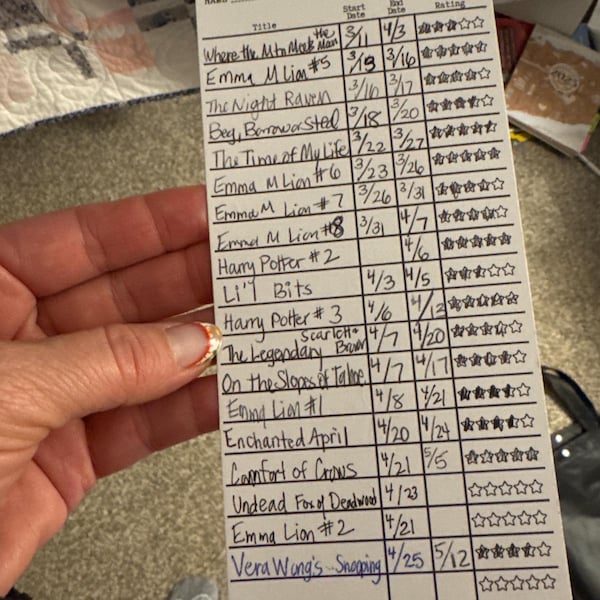 Title Start Date End Date Rating
Where the Mtn Meets the Man 3/1 4/3
Emma M Lion #5 3/13 3/16
The Night Raven 3/16 3/17
Beg, Borrow or Steal 3/18 3/20
The Time of My Life 3/22 3/27
Emma M Lion #6 3/23 3/26
Emma M Lion #7 3/26 3/31
Emma M Lion #8 3/31 4/7
Harry Potter #2 4/6
Li'l Bits 4/3 4/5
Harry Potter #3 4/6 4/12
The Legendary Scarlett + Browne 4/7 4/20
On the Slopes of 4/7 4/17
Emma Lion #1 4/8 4/21
Enchanted April 4/20 4/24
Comfort of Crows 4/21 5/5
Undead Fox of Deadwood 4/23
Emma Lion #2 4/21
Vera Wong's Snooping 4/25 5/12